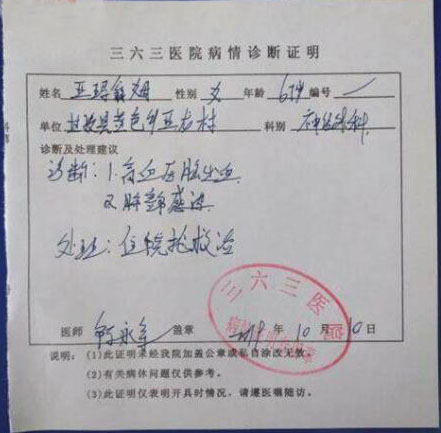 三六三医院病情诊断证明
姓名 性别 女 年龄 67岁 编号 一
单位 甘孜县 色乡亚 村 科别 神经外科
诊断及处理建议
诊断:1.高血压脑出血
2.肺部感染
处理:住院抢救治
三六三医院
医师 永 盖章 2019 年 10 月 10 日
说明:(1)此证明未经我院加盖公章或私自涂改无效。
(2)有关病休问题仅供参考。
(3)此证明仅表明开具时情况,请遵医嘱随访。